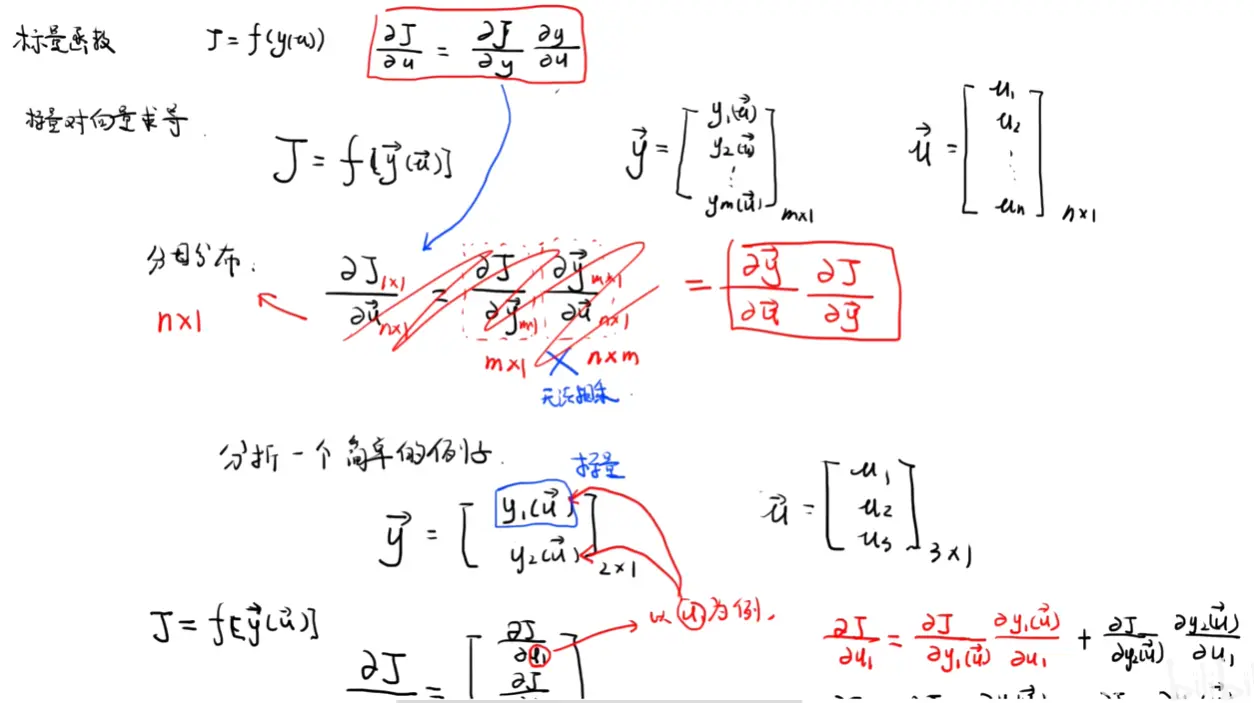 标量函数 J = f(y(u)) ∂J/∂u = ∂J/∂y ∂y/∂u
标量对向量求导
J = f[y⃗(u⃗)] y⃗ = [y₁(u⃗) y₂(u⃗) ⋮ yₘ(u⃗)]ₘₓ₁ u⃗ = [u₁ u₂ ⋮ uₙ]ₙₓ₁
分母分布. ∂J₁ₓ₁/∂u⃗ₙₓ₁ = ∂J/∂y⃗ₘₓ₁ ∂y⃗ₘₓ₁/∂u⃗ₙₓ₁ = ∂y⃗/∂u⃗ ∂J/∂y⃗
n×1 m×1 n×m
无法相乘.
分析一个简单的例子.
标量
y⃗ = [y₁(u⃗) y₂(u⃗)]₂ₓ₁ u⃗ = [u₁ u₂ u₃]₃ₓ₁
J = f[y⃗(u⃗)] 以 u₁ 为例.
∂J = [∂J/∂u₁ ∂J ∂J/∂u₁ = ∂J/∂y₁(u⃗) ∂y₁(u⃗)/∂u₁ + ∂J/∂y₂(u⃗) ∂y₂(u⃗)/∂u₁